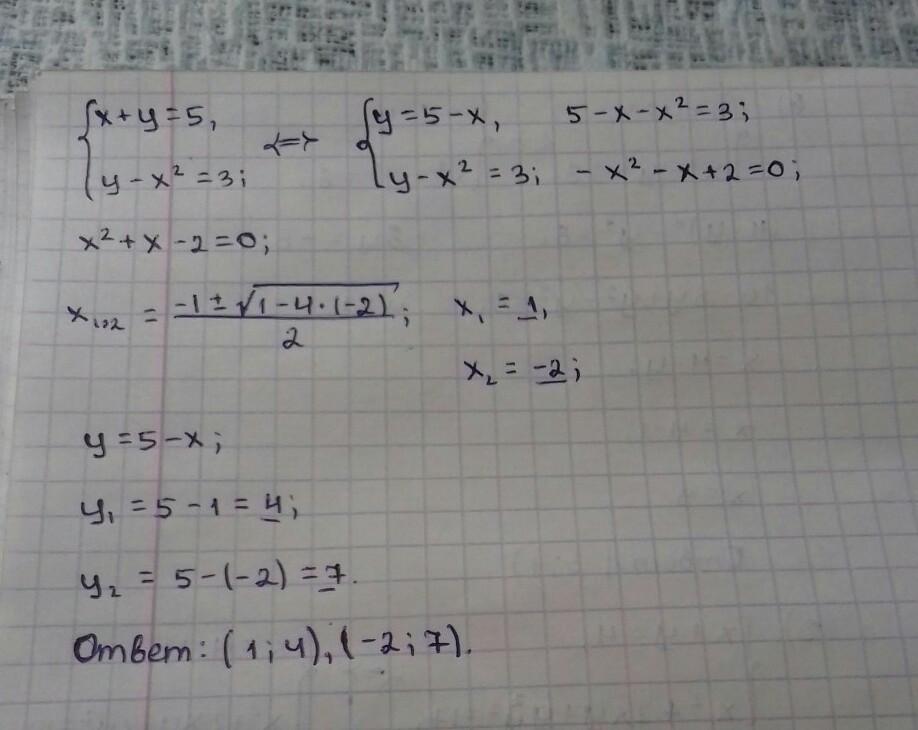 {x+y=5, <=> {y=5-x, 5-x-x²=3;
{y-x²=3; {y-x²=3; -x²-x+2=0;
x²+x-2=0;
x₁,₂ = (-1±√(1-4·(-2)))/2; x₁ = 1,
x₂ = -2;
y=5-x;
y₁ = 5-1=4;
y₂ = 5-(-2)=7.
Ответ: (1;4), (-2;7).